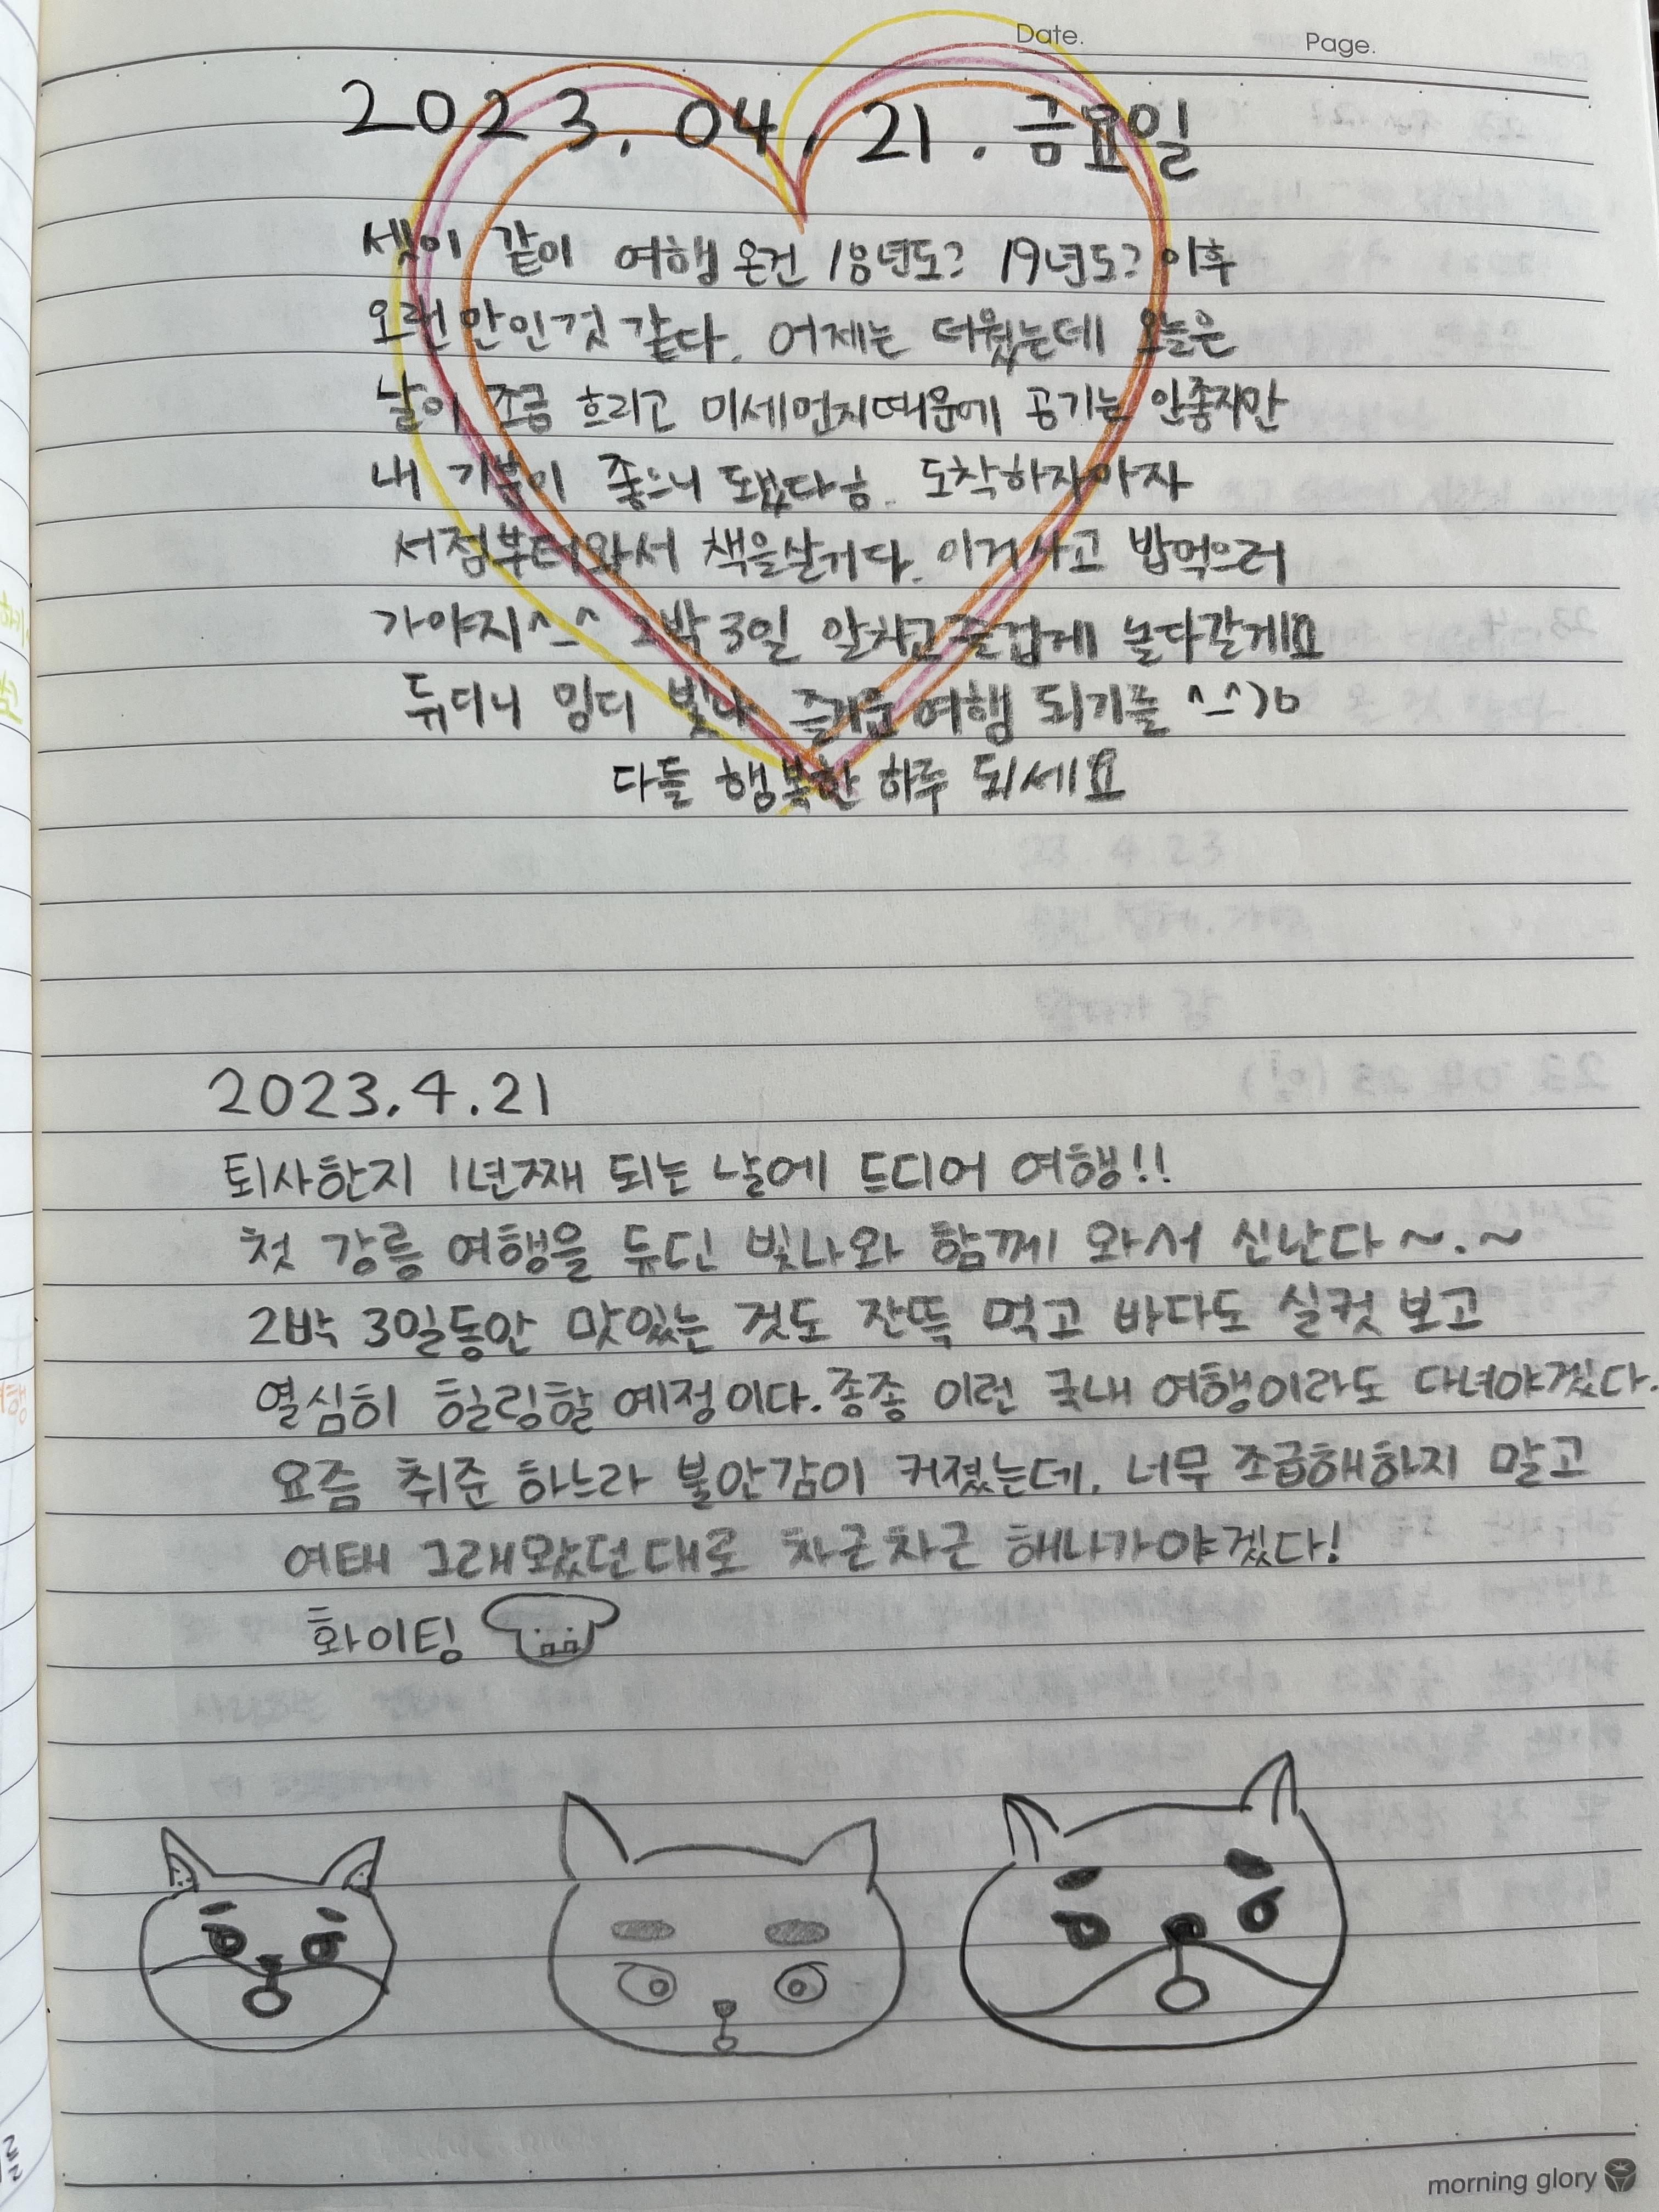 Date.
Page.
2023. 04. 21. 금요일
셋이 같이 여행 온건 18년도? 19년도? 이후
오랜만인것 같다. 어제는 더웠는데 오늘은
날이 조금 흐리고 미세먼지때문에 공기는 안좋지만
내 기분이 좋으니 됐다ㅎ. 도착하자마자
서점부터와서 책을살거다. 이거사고 밥먹으러
가야지^_^ 2박 3일 알차고 즐겁게 놀다갈게요
듀디니 밍디 빛나 즐거운 여행 되기를 ^_^)b
다들 행복한 하루 되세요
2023.4.21
퇴사한지 1년째 되는 날에 드디어 여행!!
첫 강릉 여행을 듀딘 빛나와 함께 와서 신난다~.~
2박 3일동안 맛있는 것도 잔뜩 먹고 바다도 실컷 보고
열심히 힐링할 예정이다. 종종 이런 국내 여행이라도 다녀야겠다.
요즘 취준 하느라 불안감이 커졌는데, 너무 조급해하지 말고
여태 그래왔던대로 차근차근 해나가야겠다!
화이팅
morning glory